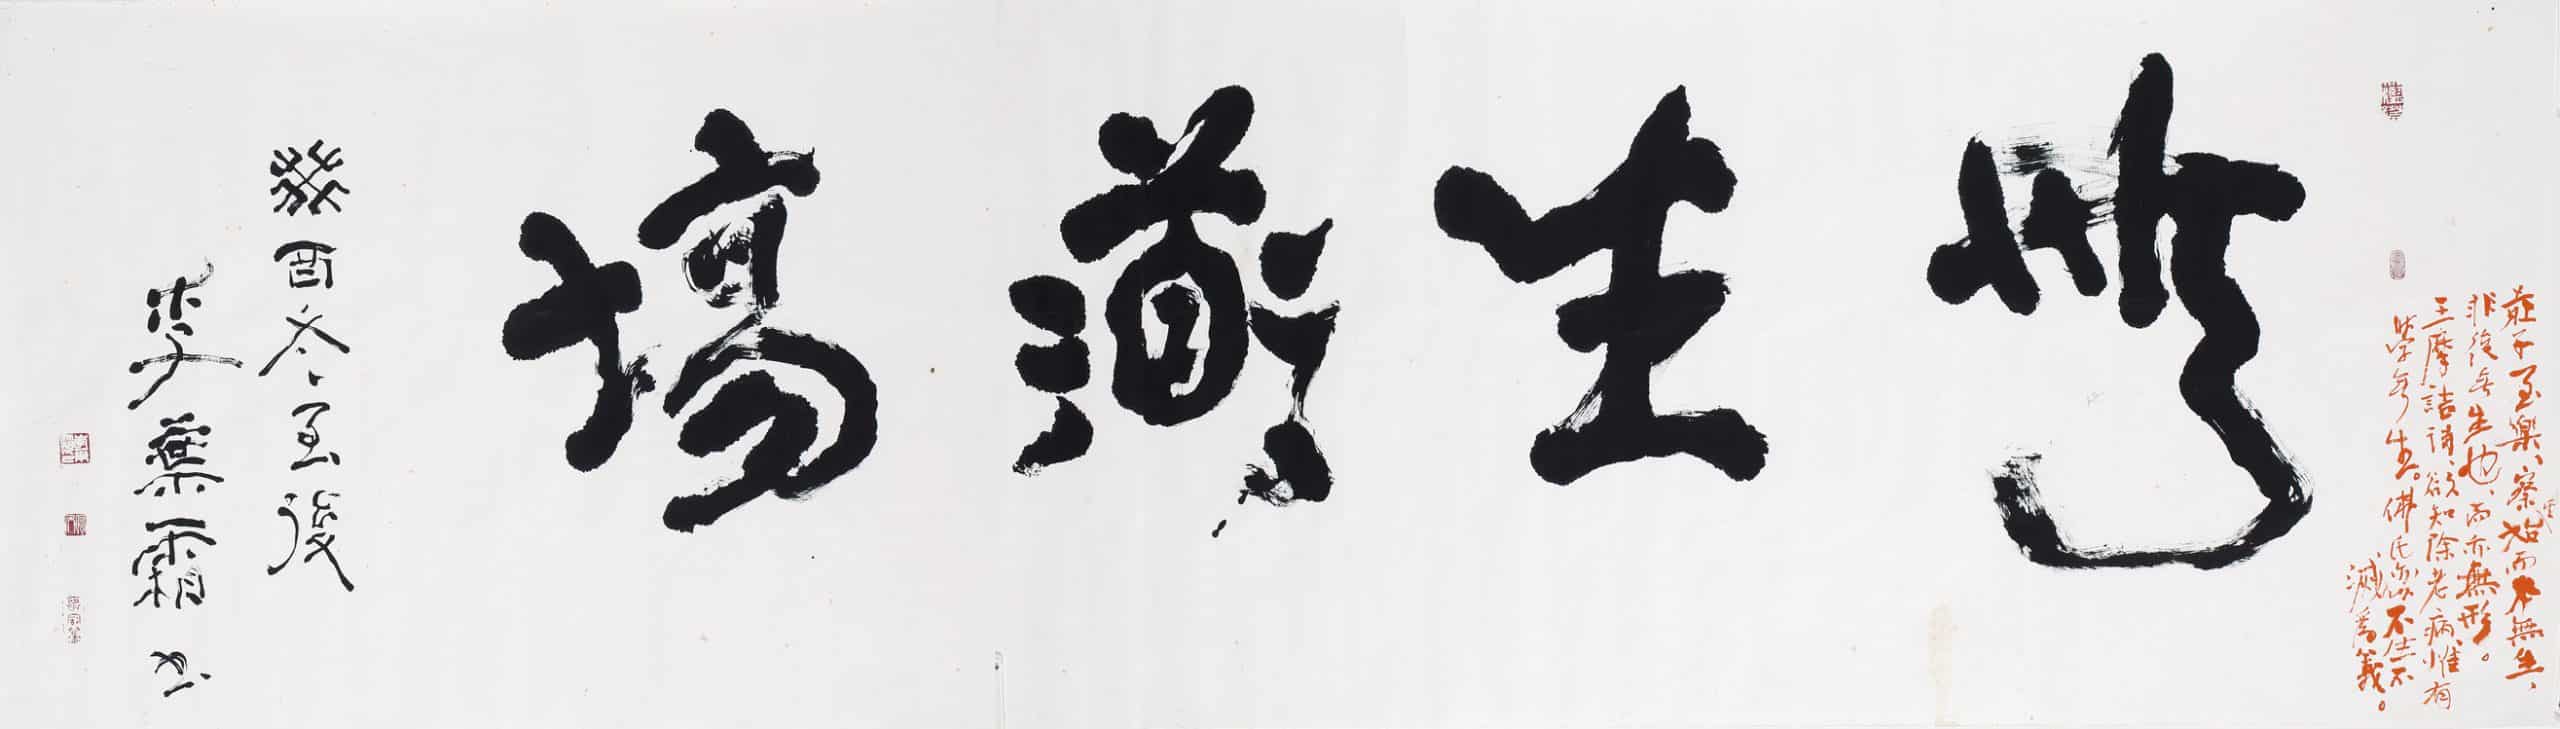 莊子至樂、察其始而本無生、
非徒無生也、而亦無形。
王摩詰詩、欲知除老病、惟有
學無生。佛氏亦以不生不
滅為義。
無生道場
癸酉冬至後
李葉霜書